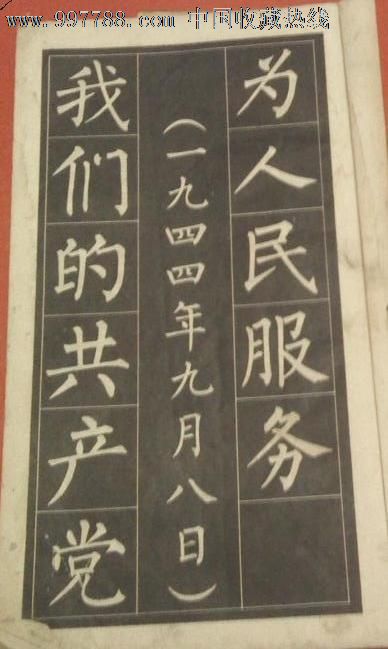 www.997788.com 中国收藏热线
为人民服务
（一九四四年九月八日）
我们的共产党